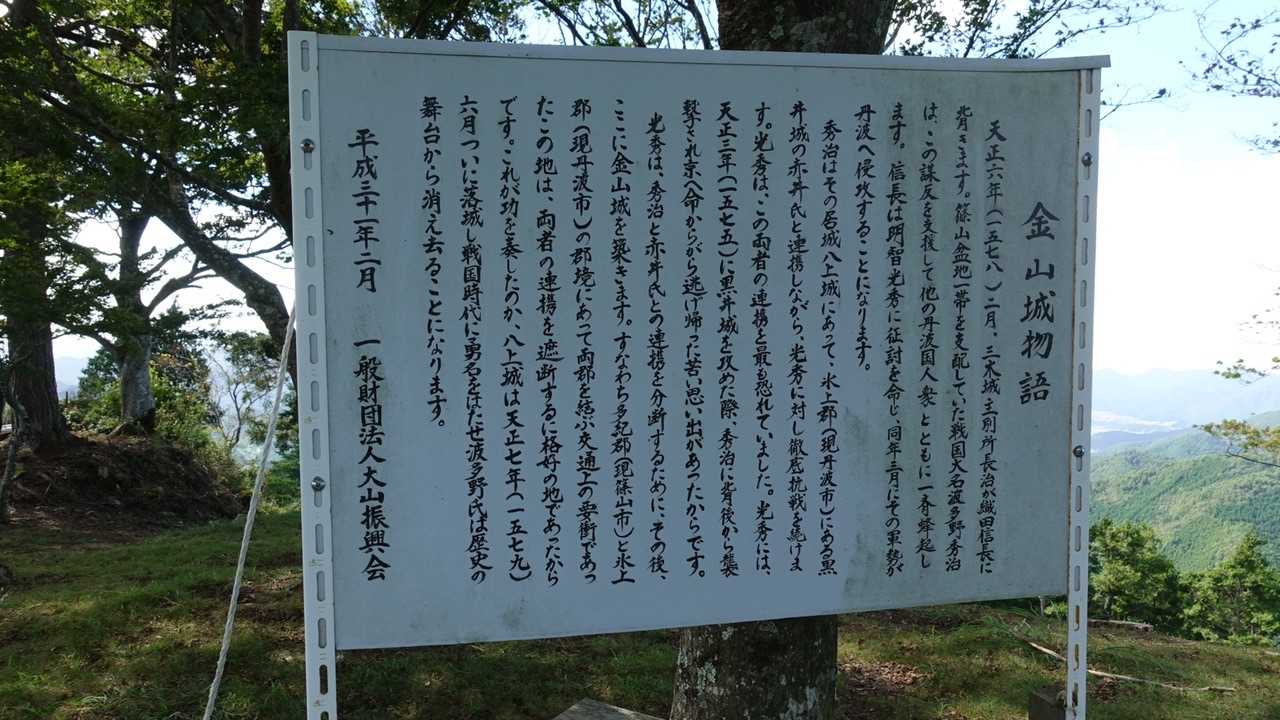 金山城物語
天正六年(一五七八)二月、三木城主別所長治が織田信長に
背きます。篠山盆地一帯を支配していた戦国大名波多野秀治
は、この謀反を支援して他の丹波国人衆とともに一斉蜂起し
ます。信長は明智光秀に征討を命じ、同年三月にその軍勢が
丹波へ侵攻することになります。
秀治はその居城八上城にあって、氷上郡(現丹波市)にある黒
井城の赤井氏と連携しながら、光秀に対し徹底抗戦を続けま
す。光秀は、この両者の連携を最も恐れていました。光秀には、
天正三年(一五七五)に黒井城を攻めた際、秀治に背後から襲
撃され京へ命からがら逃げ帰った苦い思い出があったからです。
光秀は、秀治と赤井氏との連携を分断するために、その後、
ここに金山城を築きます。すなわち多紀郡(現篠山市)と氷上
郡(現丹波市)の郡境にあって両郡を結ぶ交通上の要衝であっ
たこの地は、両者の連携を遮断するに格好の地であったから
です。これが功を奏したのか、八上城は天正七年(一五七九)
六月ついに落城し戦国時代に勇名をはせた波多野氏は歴史の
舞台から消え去ることになります。
平成二十一年二月 一般財団法人大山振興会